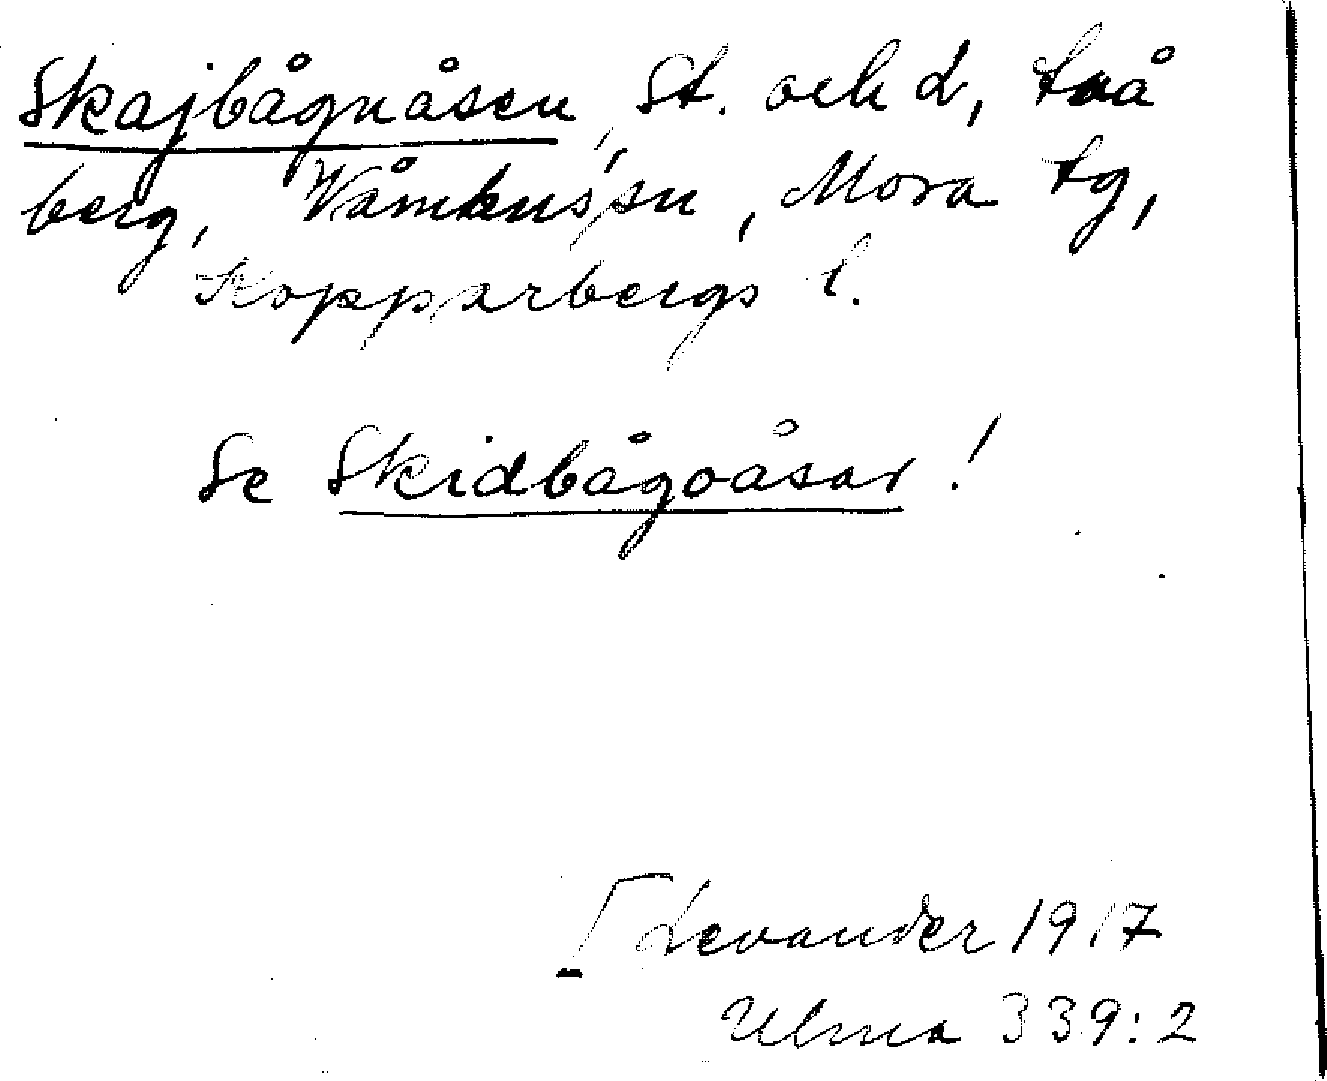 Skajbågnåsen, St. och L, två
berg, Våmhus sn, Mora tg,
Kopparbergs l.
Se Skidbågoåsar!
[Levander 1917
Ulma 339:2